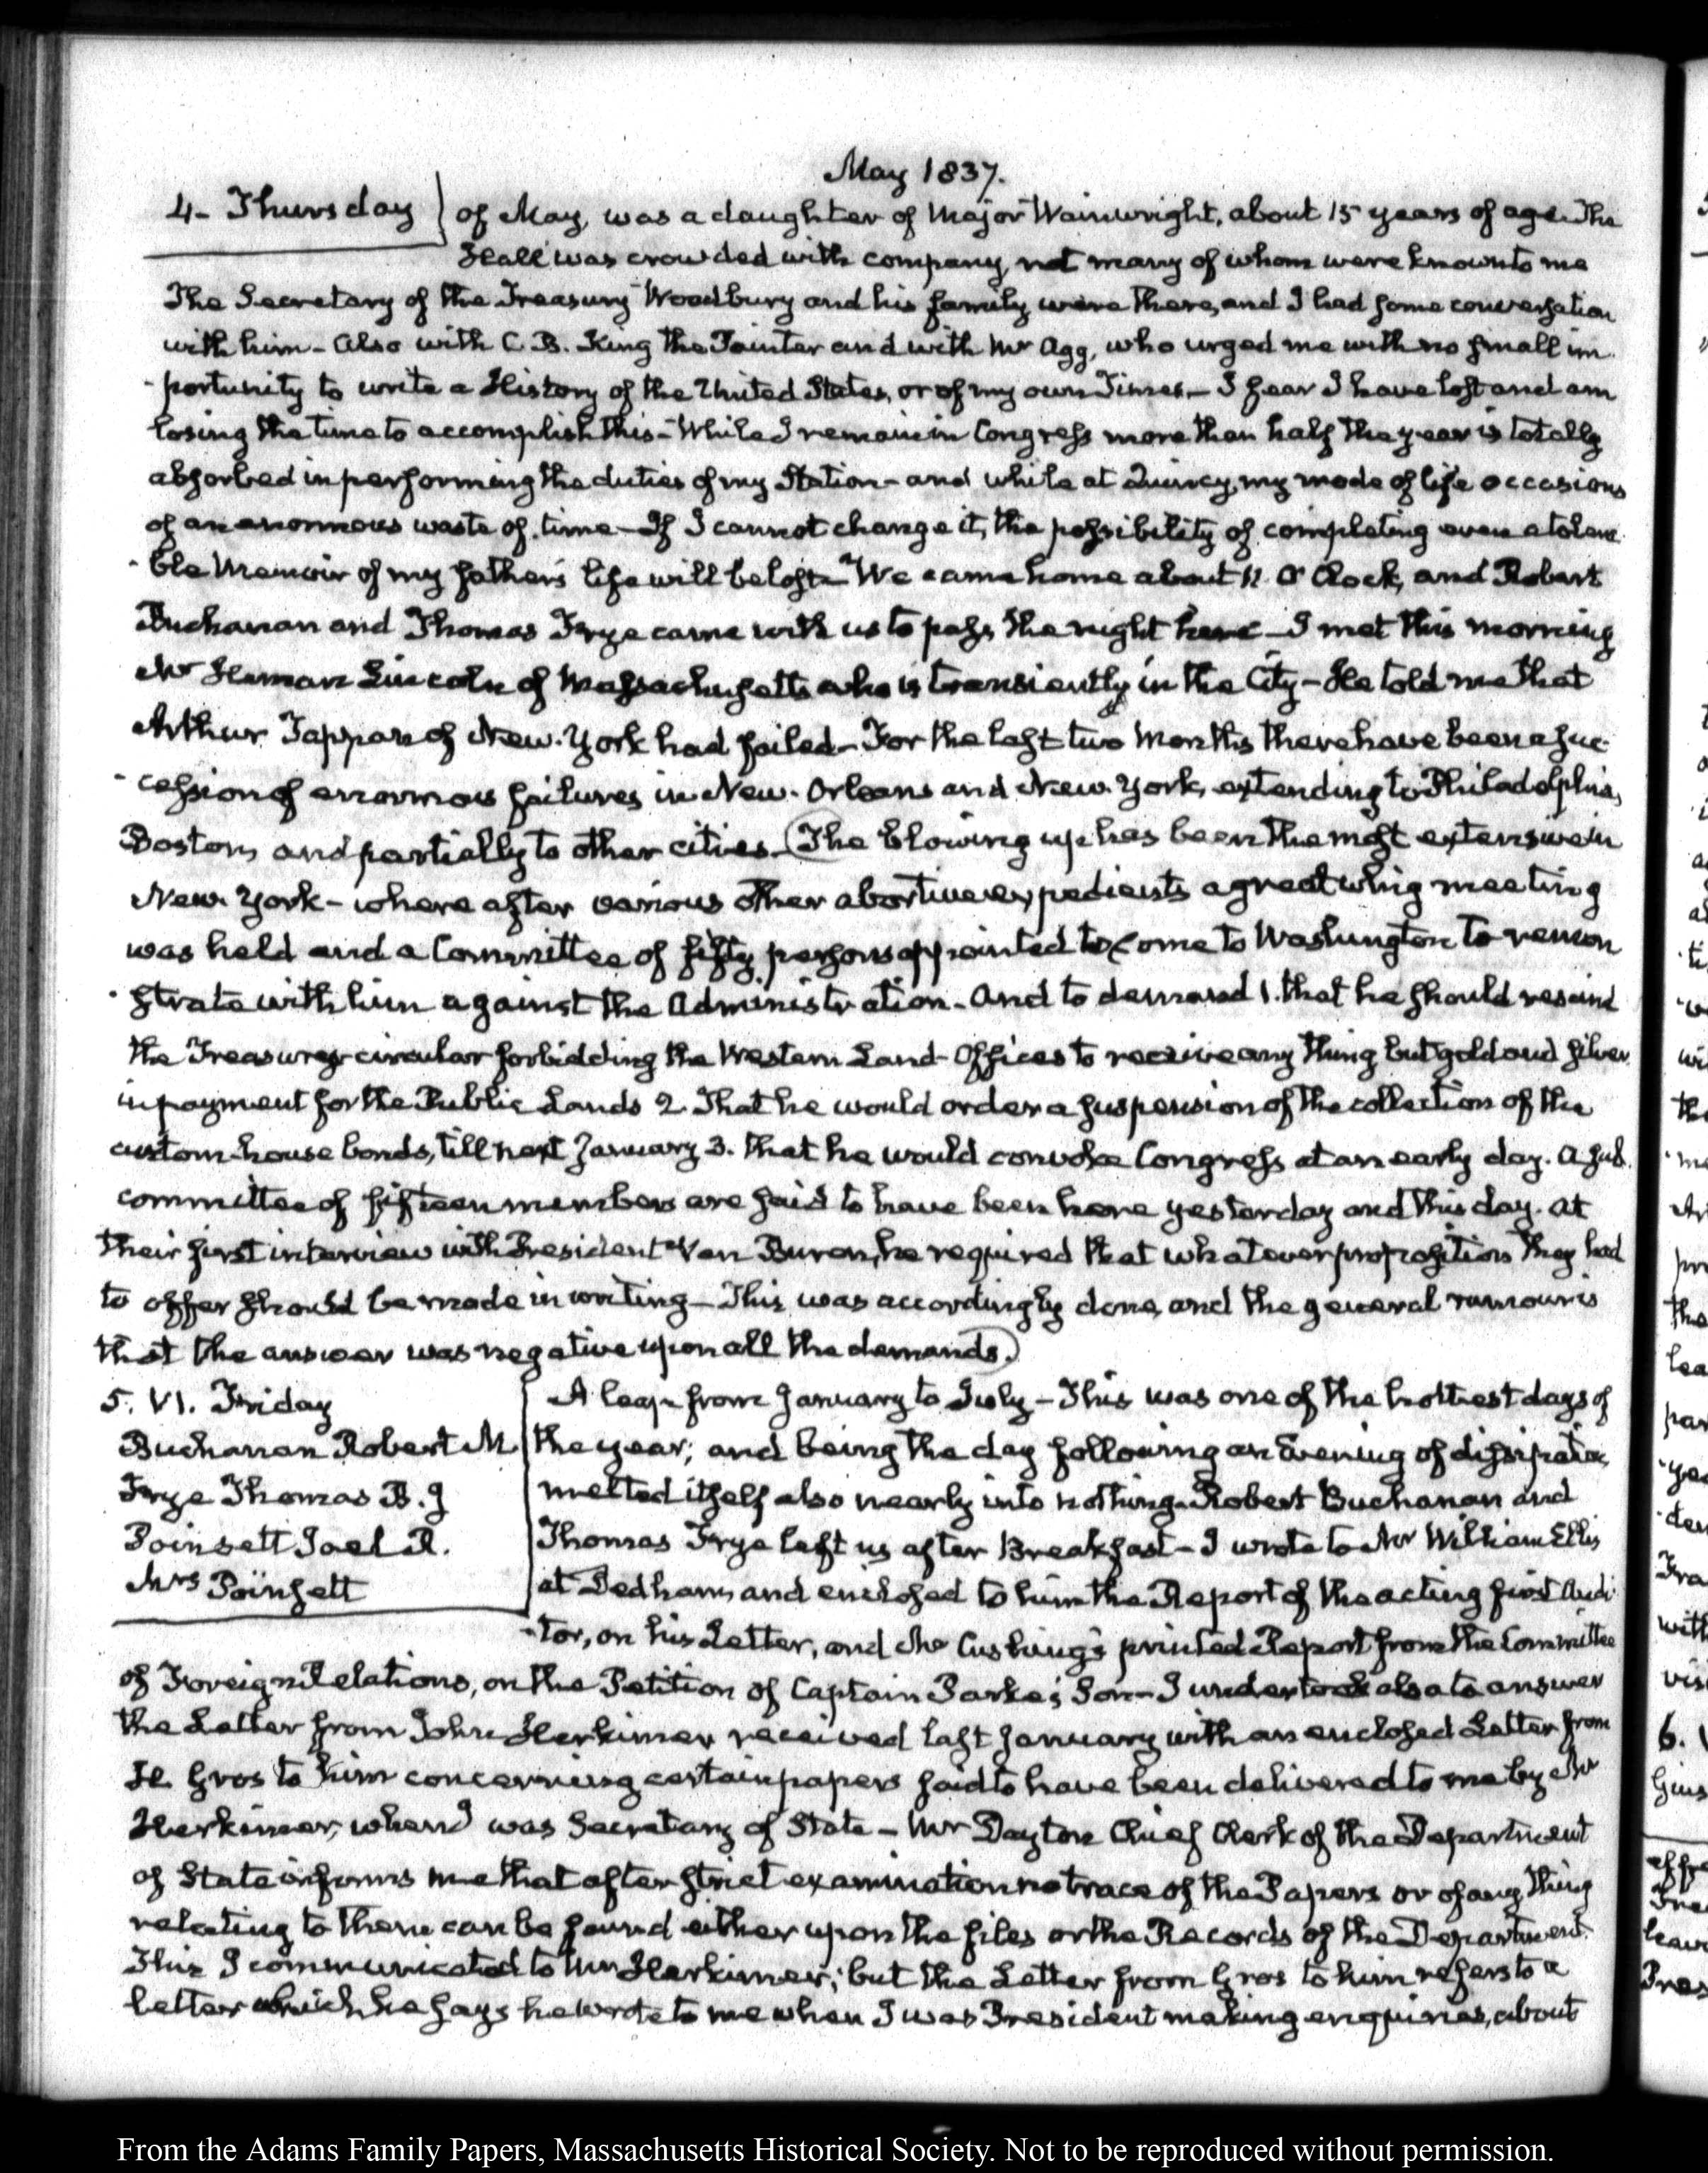 May 1837.
4- Thursday
of May, was a daughter of Major Wainwright, about 15 years of age. The
Hall was crowded with company, not many of whom were known to me
The Secretary of the Treasury Woodbury and his family were there, and I had some conversation
with him - Also with C. B. King the Painter and with Mr Agg, who urged me with no small im
-portunity to write a History of the United States, or of my own Times - I fear I have lost and am
losing the time to accomplish this - While I remain in Congress more than half the year is totally
absorbed in performing the duties of my Station - and while at Quincy, my mode of life occasions
of an enormous waste of time - If I cannot change it, the possibility of completing even a tolera
-ble Memoir of my father's life will be lost - We came home about 11. O'Clock, and Robert
Buchanan and Thomas Frye came with us to pass the night here - I met this morning
Mr Heman Lincoln of Massachusetts who is transiently in the City - He told me that
Arthur Tappan of New-York had failed - For the last two Months there have been a suc
-cession of enormous failures in New-Orleans and New-York, extending to Philadelphia,
Boston, and partially to other cities - (The blowing up has been the most extensive in
New-York - where after various other abortive expedients a great whig meeting
was held and a Committee of fifty persons appointed to come to Washington to remon
-strate with him against the Administration - And to demand 1. that he should rescind
the Treasury circular forbidding the Western Land-Offices to receive any thing but gold and silver
in payment for the Public Lands 2. That he would order a suspension of the collection of the
custom-house bonds, till next January 3. that he would convoke Congress at an early day. A sub
committee of fifteen members are said to have been here yesterday and this day. At
their first interview with President Van Buren, he required that whatever proposition they had
to offer should be made in writing - This was accordingly done, and the general rumour is
that the answer was negative upon all the demands.)
5. VI. Friday
Buchanan Robert M
Frye Thomas B. J
Poinsett Joel R.
Mrs Poinsett
A leap from January to July - This was one of the hottest days of
the year; and being the day following an Evening of dissipation,
melted itself also nearly into nothing. Robert Buchanan and
Thomas Frye left us after Breakfast - I wrote to Mr William Ellis
at Dedham, and enclosed to him the Report of the acting first Audi
-tor, on his Letter, and Mr Cushing's printed Report from the Committee
of Foreign Relations, on the Petition of Captain Parke's Son - I undertook also to answer
the Letter from John Herkimer received last January with an enclosed Letter from
H. Gros to him concerning certain papers said to have been delivered to me by Mr
Herkimer, when I was Secretary of State - Mr Dayton Chief Clerk of the Department
of State informs me that after strict examination no trace of the Papers or of any thing
relating to them can be found either upon the files or the Records of the Department.
This I communicated to Mr Herkimer; but the Letter from Gros to him refers to a
letter which he says he wrote to me when I was President making enquiries, about
From the Adams Family Papers, Massachusetts Historical Society. Not to be reproduced without permission.